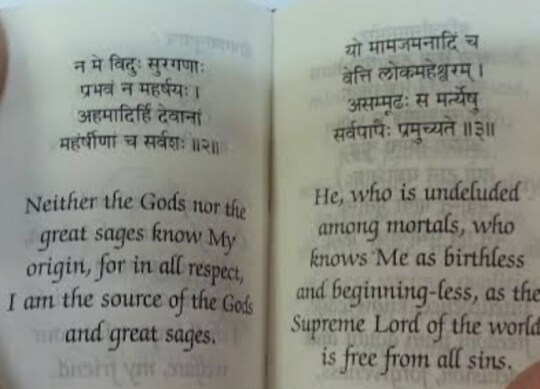 न मे विदुः सुरगणाः
प्रभवं न महर्षयः ।
अहमादिर्हि देवानां
महर्षीणां च सर्वशः ॥२॥
Neither the Gods nor the
great sages know My
origin, for in all respect,
I am the source of the Gods
and great sages.
यो मामजमनादिं च
वेत्ति लोकमहेश्वरम् ।
असम्मूढः स मर्त्येषु
सर्वपापैः प्रमुच्यते ॥३॥
He, who is undeluded
among mortals, who
knows Me as birthless
and beginning-less, as the
Supreme Lord of the world
is free from all sins.